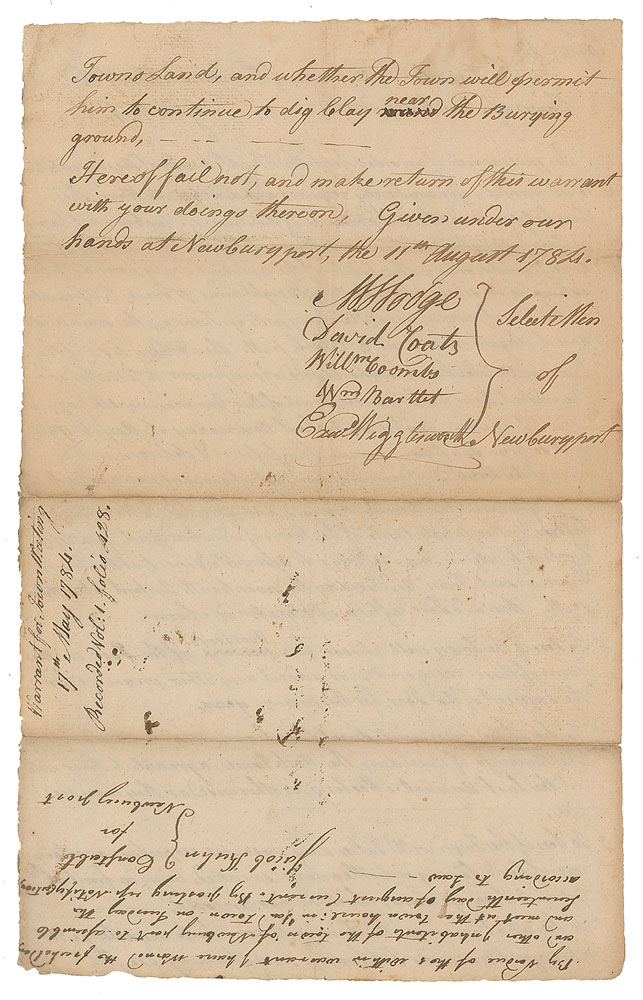 Towns Land, and whether the Town will permit
him to continue to dig Clay near the Burying
ground,
Hereof fail not, and make return of this warrant
with your doings thereon, Given under our
hands at Newburyport, the 11th August 1784.
M Hodge
David Coats
Willm Coombs
Wm Bartlet
Edwd Wigglesworth
Select Men
of
Newburyport
Warrant for Town Meeting
17th May 1784.
Recorded Vol: 1. folio 428.
By Vertue of the within warrant I have warned the freholders
and other Inhabitants of the town of Newbury port to assemble
and meet at the Town house in sd Town on Tuesday the
Seventeenth day of august Current. By posting up Notifycations
according to Law
Jacob Constable
for
Newbury port